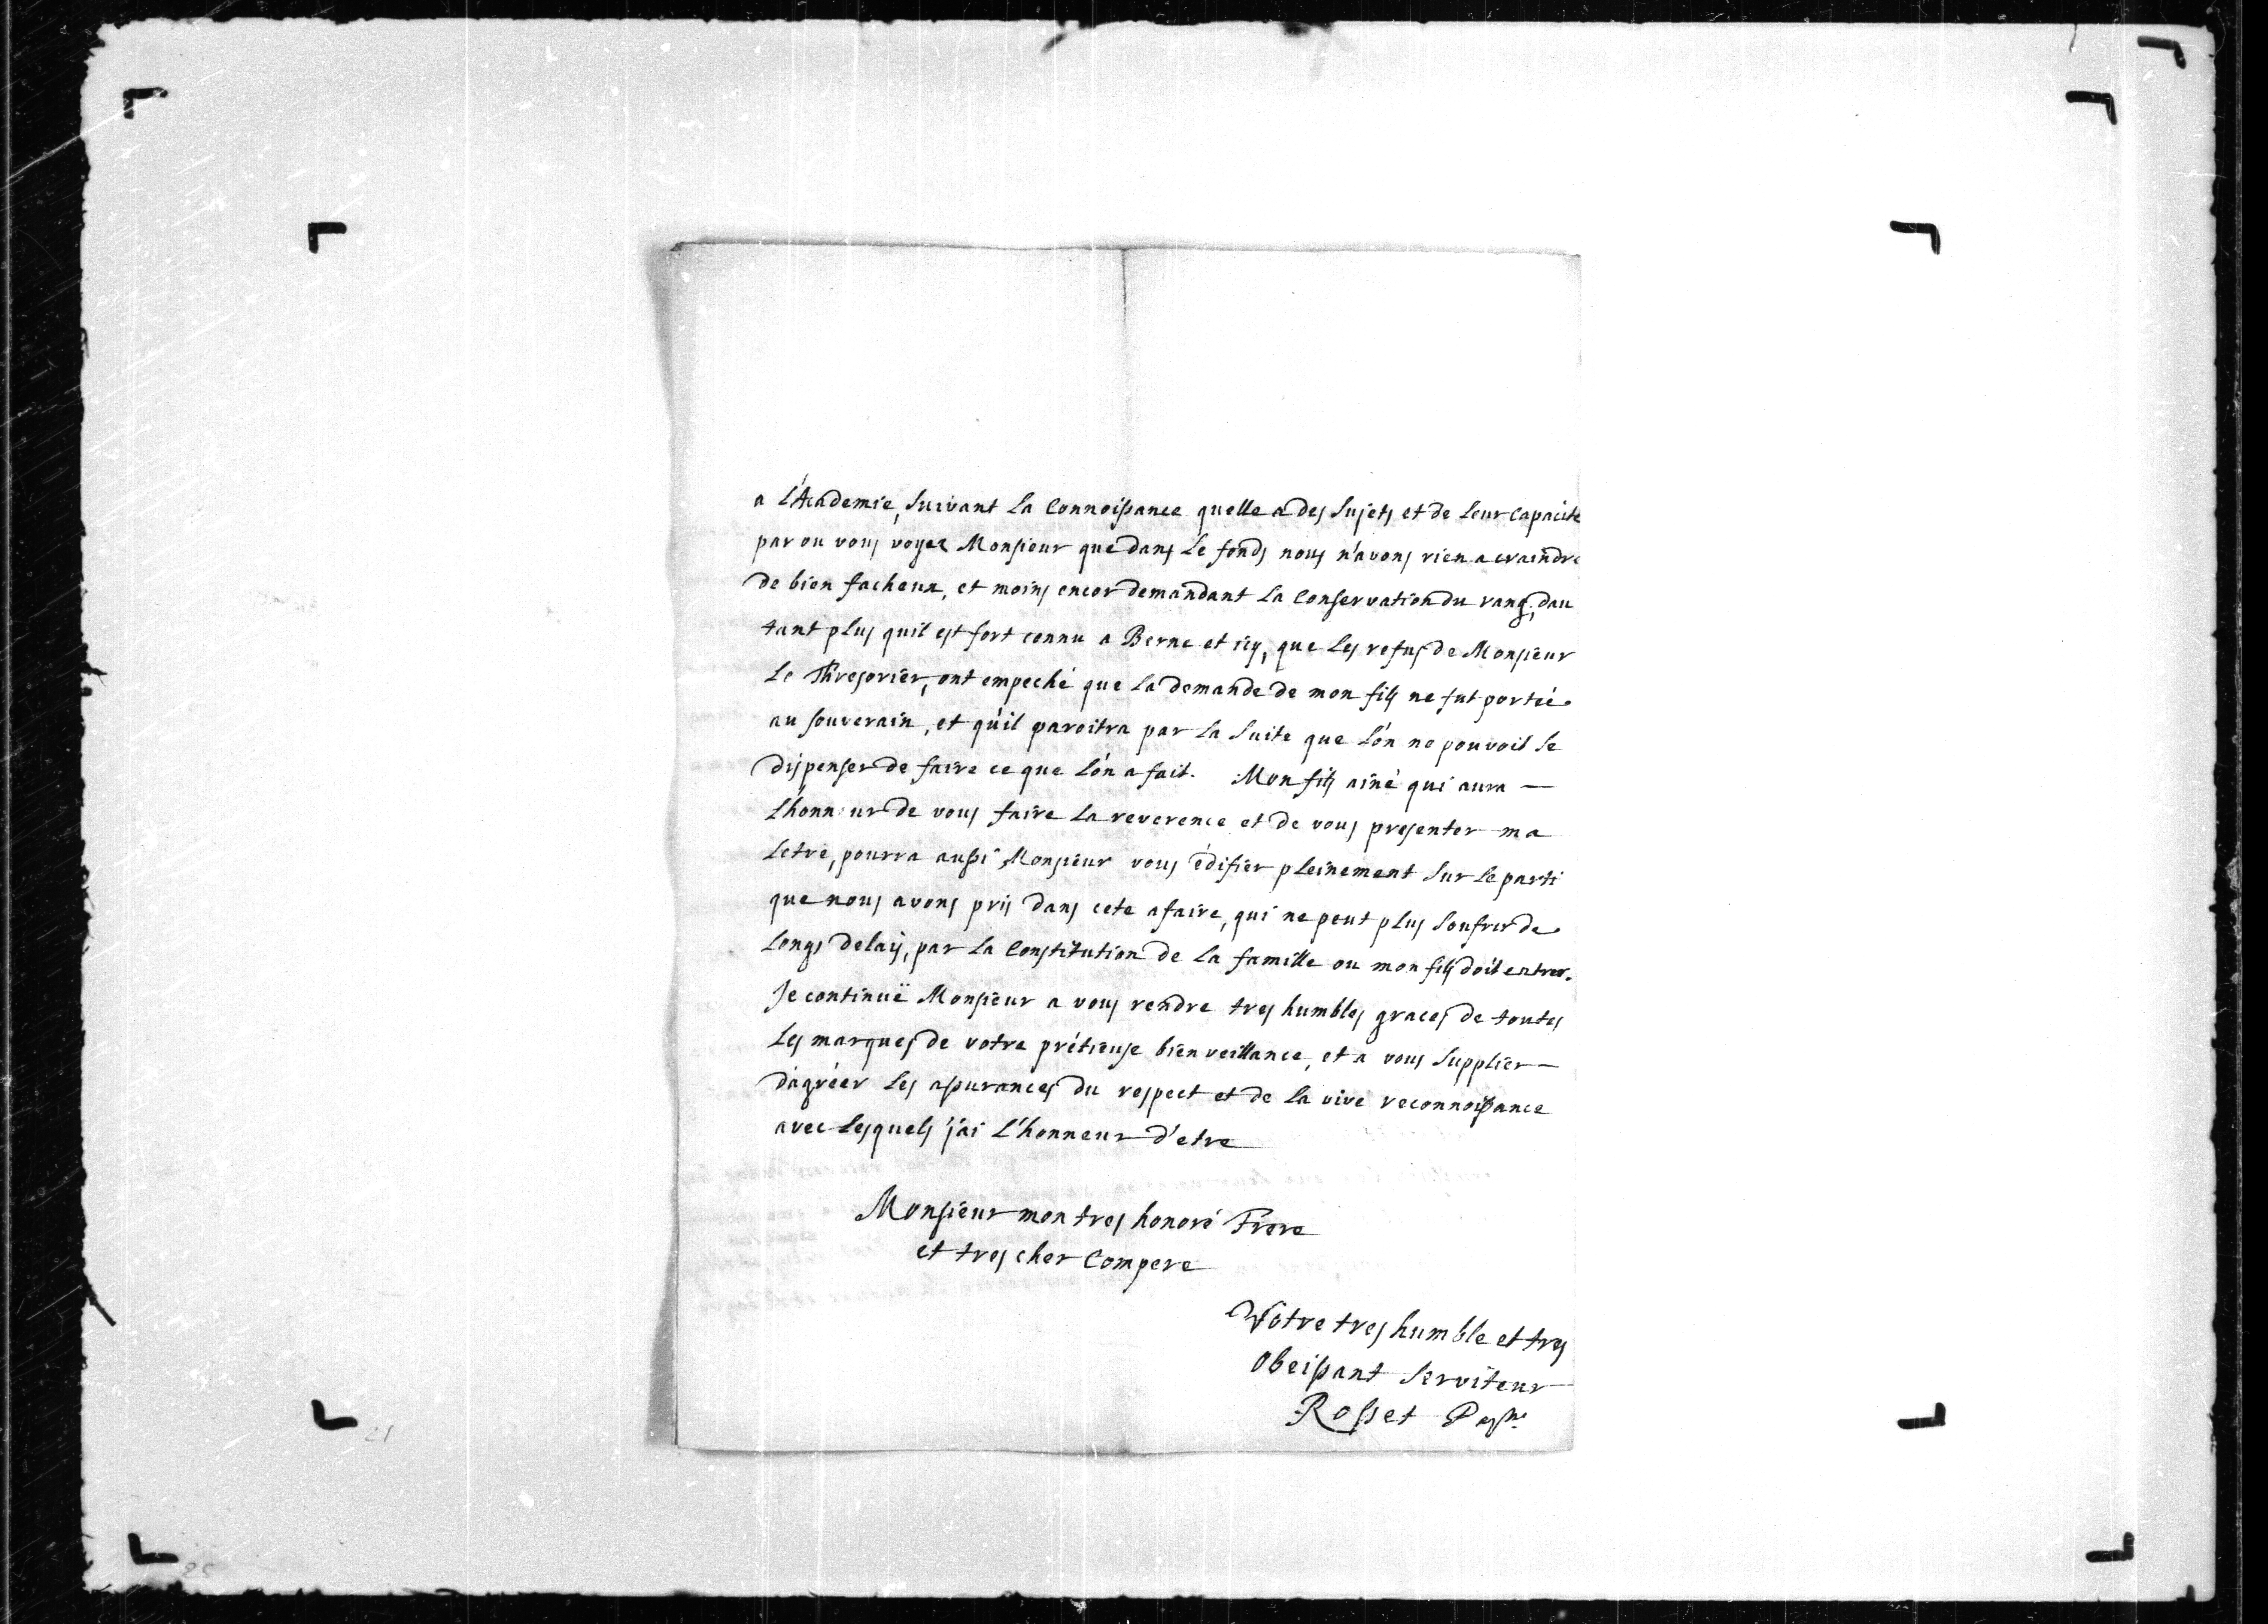 a L'Academie, suivant La Connoissance quelle a des sujets et de Leur Capacité
par ou vous voyez Monsieur que dans Le fonds nous n'avons rien a craindre
de bien facheux, et moins encor demandant La Conservation du rang, dau
tant plus quil est fort connu a Berne et icy, que Les refus de Monsieur
Le Thresorier, ont empeché que La demande de mon fils ne fut portée
au souverain, et qu'il paroitra par La suite que L'on ne pouvoit se
dispenser de faire ce que L'on a fait. Mon fils ainé qui aura —
L'honneur de vous faire La reverence et de vous presenter ma
Letre, pourra aussi Monsieur vous édifier pleinement sur Le parti
que nous avons pris dans cete afaire, qui ne peut plus soufrir de
Longs delais, par La Constitution de La famille ou mon fils doit entrer.
Je continuë Monsieur a vous rendre tres humbles graces de toutes
Les marques de votre prétieuse bienveillance, et a vous supplier —
d'agréer Les assurances du respect et de La vive reconnoissance
avec Lesquels j'ai L'honneur d'etre
Monsieur mon tres honoré Frere
et tres cher Compere
Votre tres humble et tres
Obeissant serviteur
Rosset